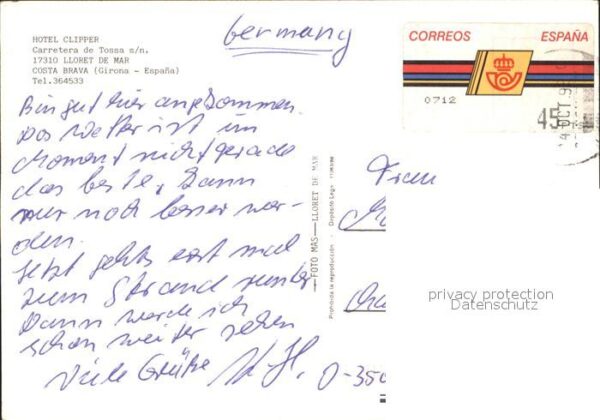 Germany
HOTEL CLIPPER
Carretera de Tossa s/n.
17310 LLORET DE MAR
COSTA BRAVA (Girona - España)
Tel.364533
CORREOS ESPAÑA
0712
45
OCT
Bin gut hier angekommen.
Das Wetter ist im
Moment nicht gerade
das beste, kann
nur noch besser wer-
den.
Jetzt gehts erst mal
zum Strand runter
Dann werde ich
schon weiter sehen
Viele Grüße
FOTO MAS — LLORET DE MAR
Prohibida la reproducción - Depósito Legal
Frau
privacy protection
Datenschutz